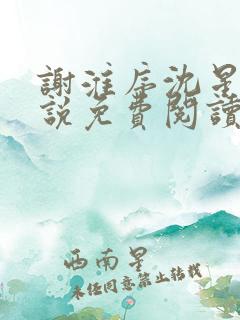 謝淮序沈星
説免費閱讀
西南星
未经同意禁止转载